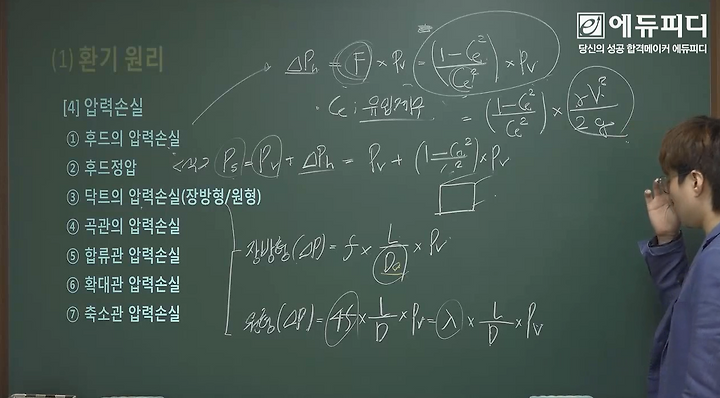 에듀피디
당신의 성공 합격메이커 에듀피디
(1) 환기 원리
[4] 압력손실
① 후드의 압력손실
② 후드정압
③ 닥트의 압력손실(장방형/원형)
④ 곡관의 압력손실
⑤ 합류관 압력손실
⑥ 확대관 압력손실
⑦ 축소관 압력손실
ΔPh = F × Pv = (1-Ce²/Ce²) × Pv
Ce : 유입계수 = (1-Ce²/Ce²) × γV²/2g
Ps = Pv + ΔPh = Pv + (1-Ce²/Ce²) × Pv
장방형(ΔP) = f × L/D × Pv
원형(ΔP) = 4f × L/D × Pv = λ × L/D × Pv